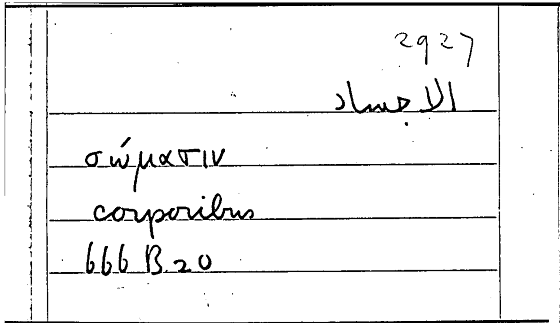 2927
الاجساد
σώμασιν
corporibus
666 B 20